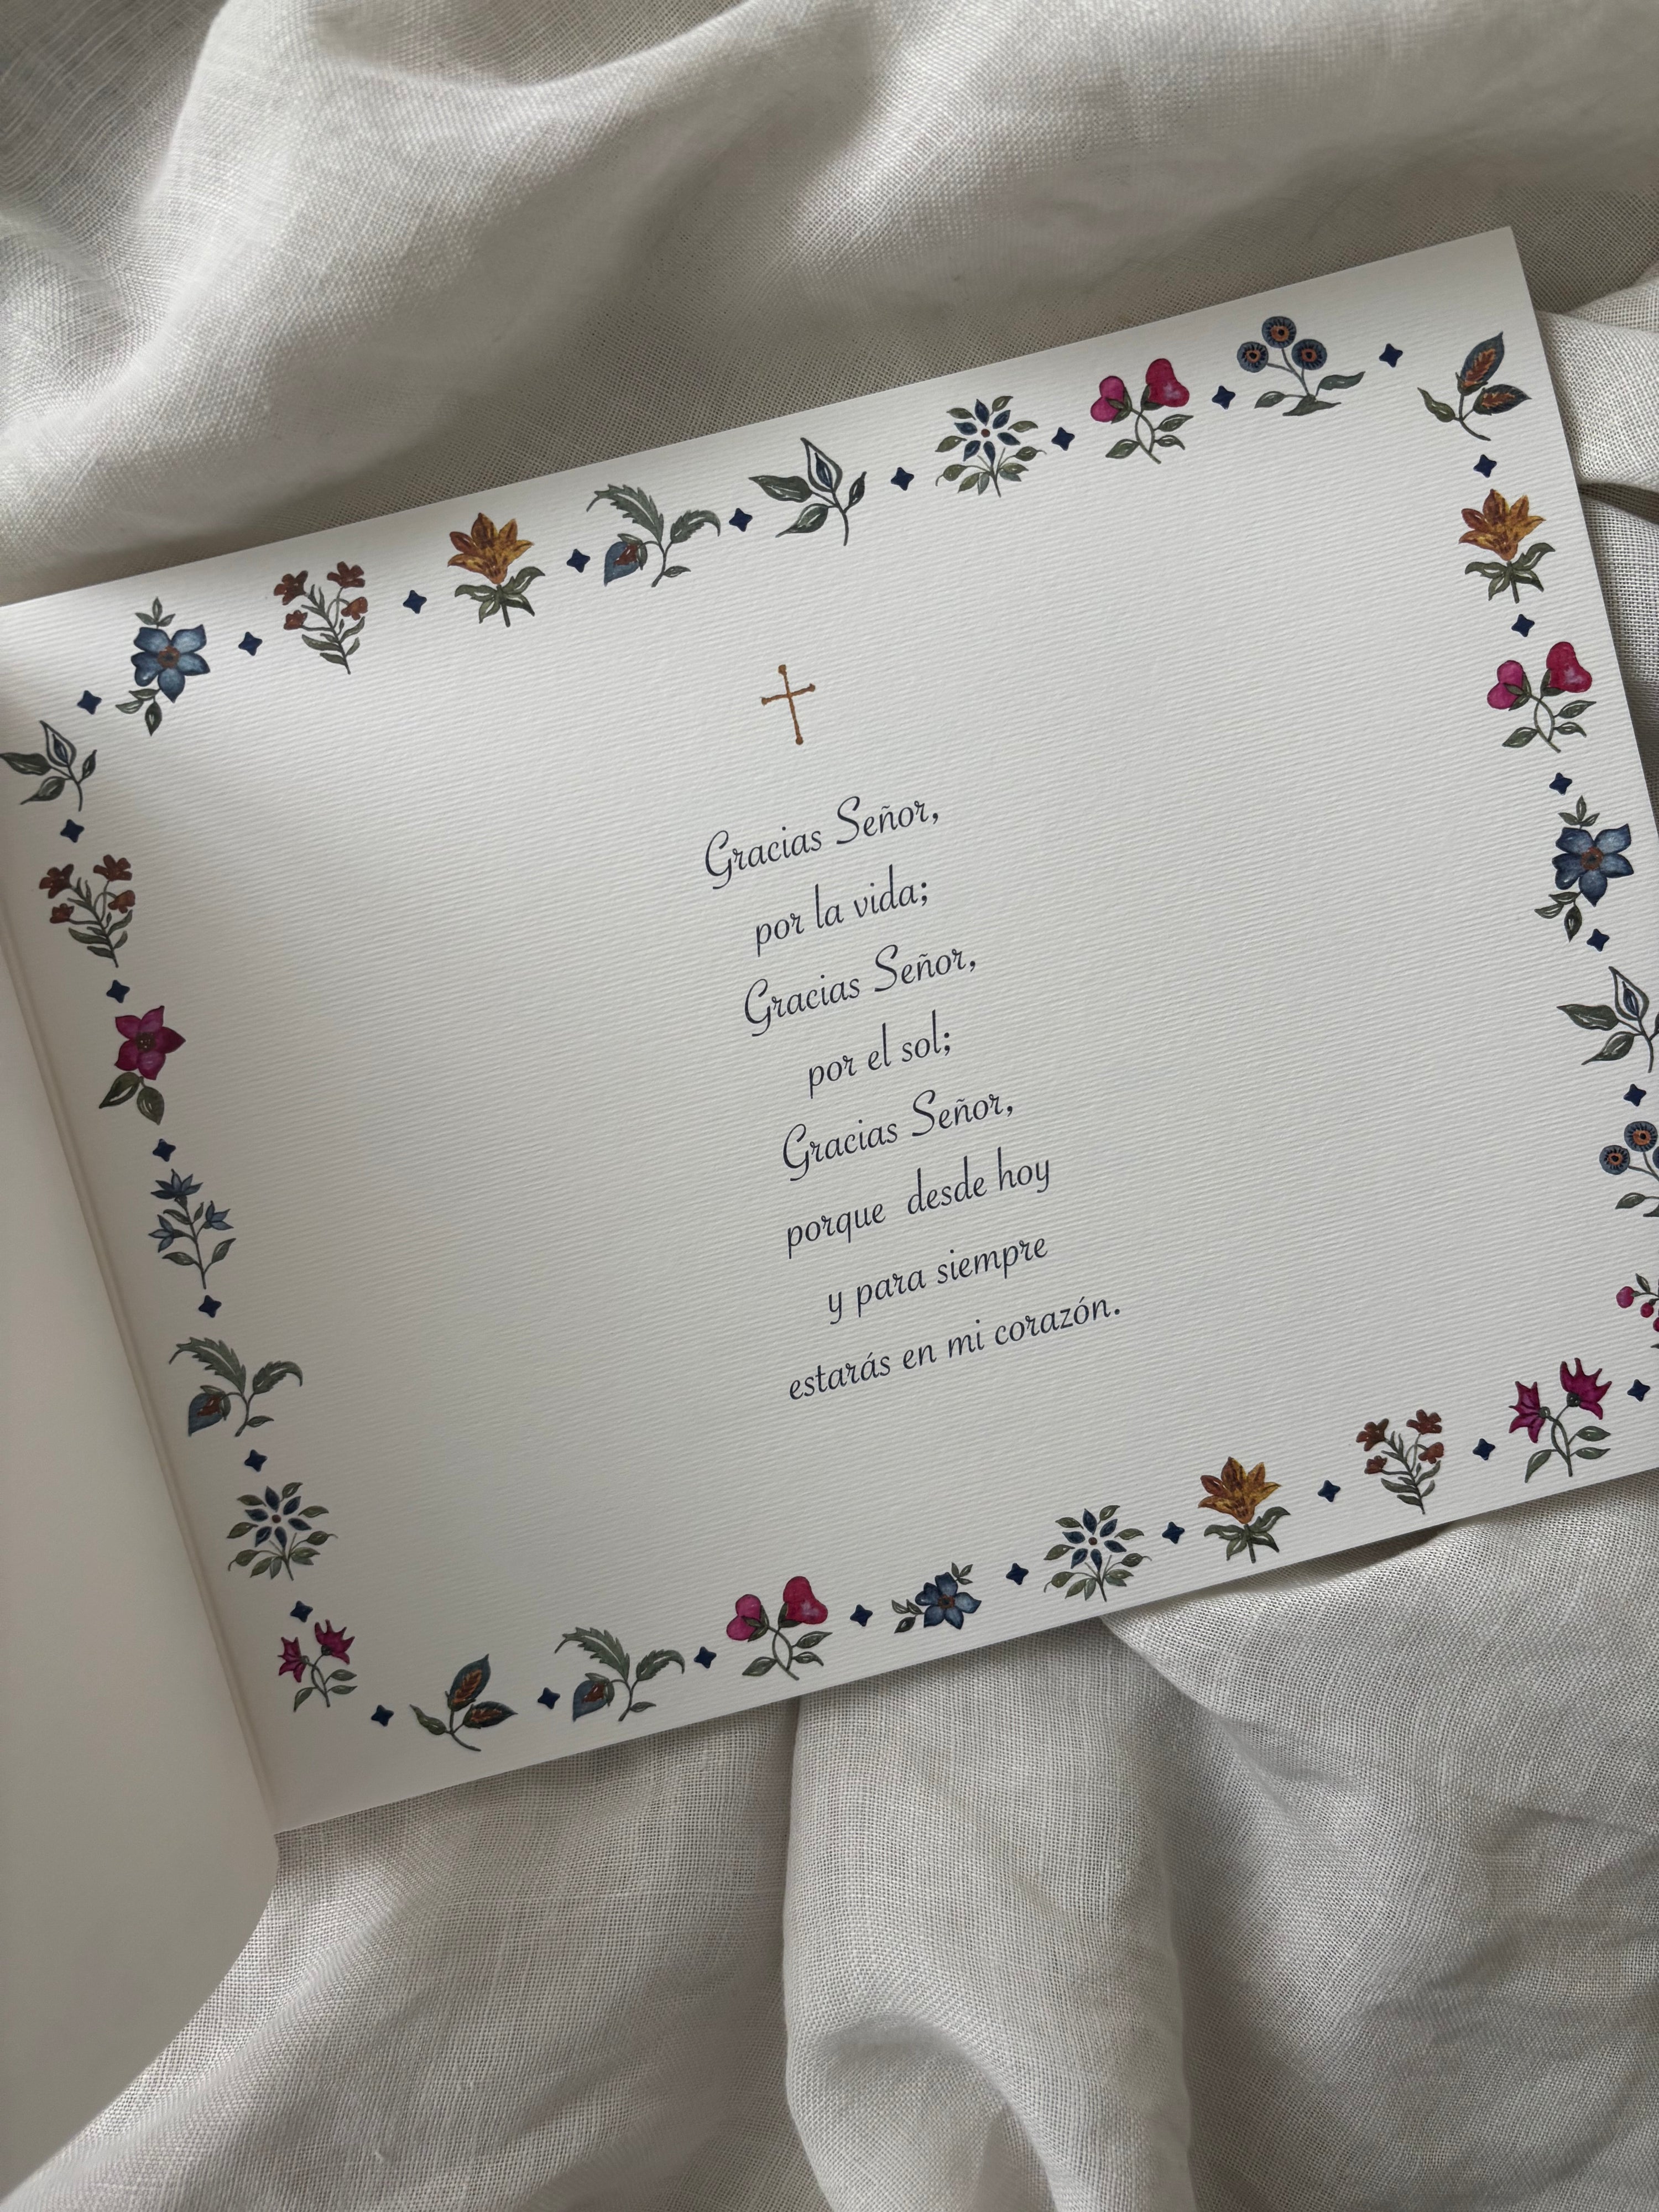 Gracias Señor,
por la vida;
Gracias Señor,
por el sol;
Gracias Señor,
porque desde hoy
y para siempre
estarás en mi corazón.